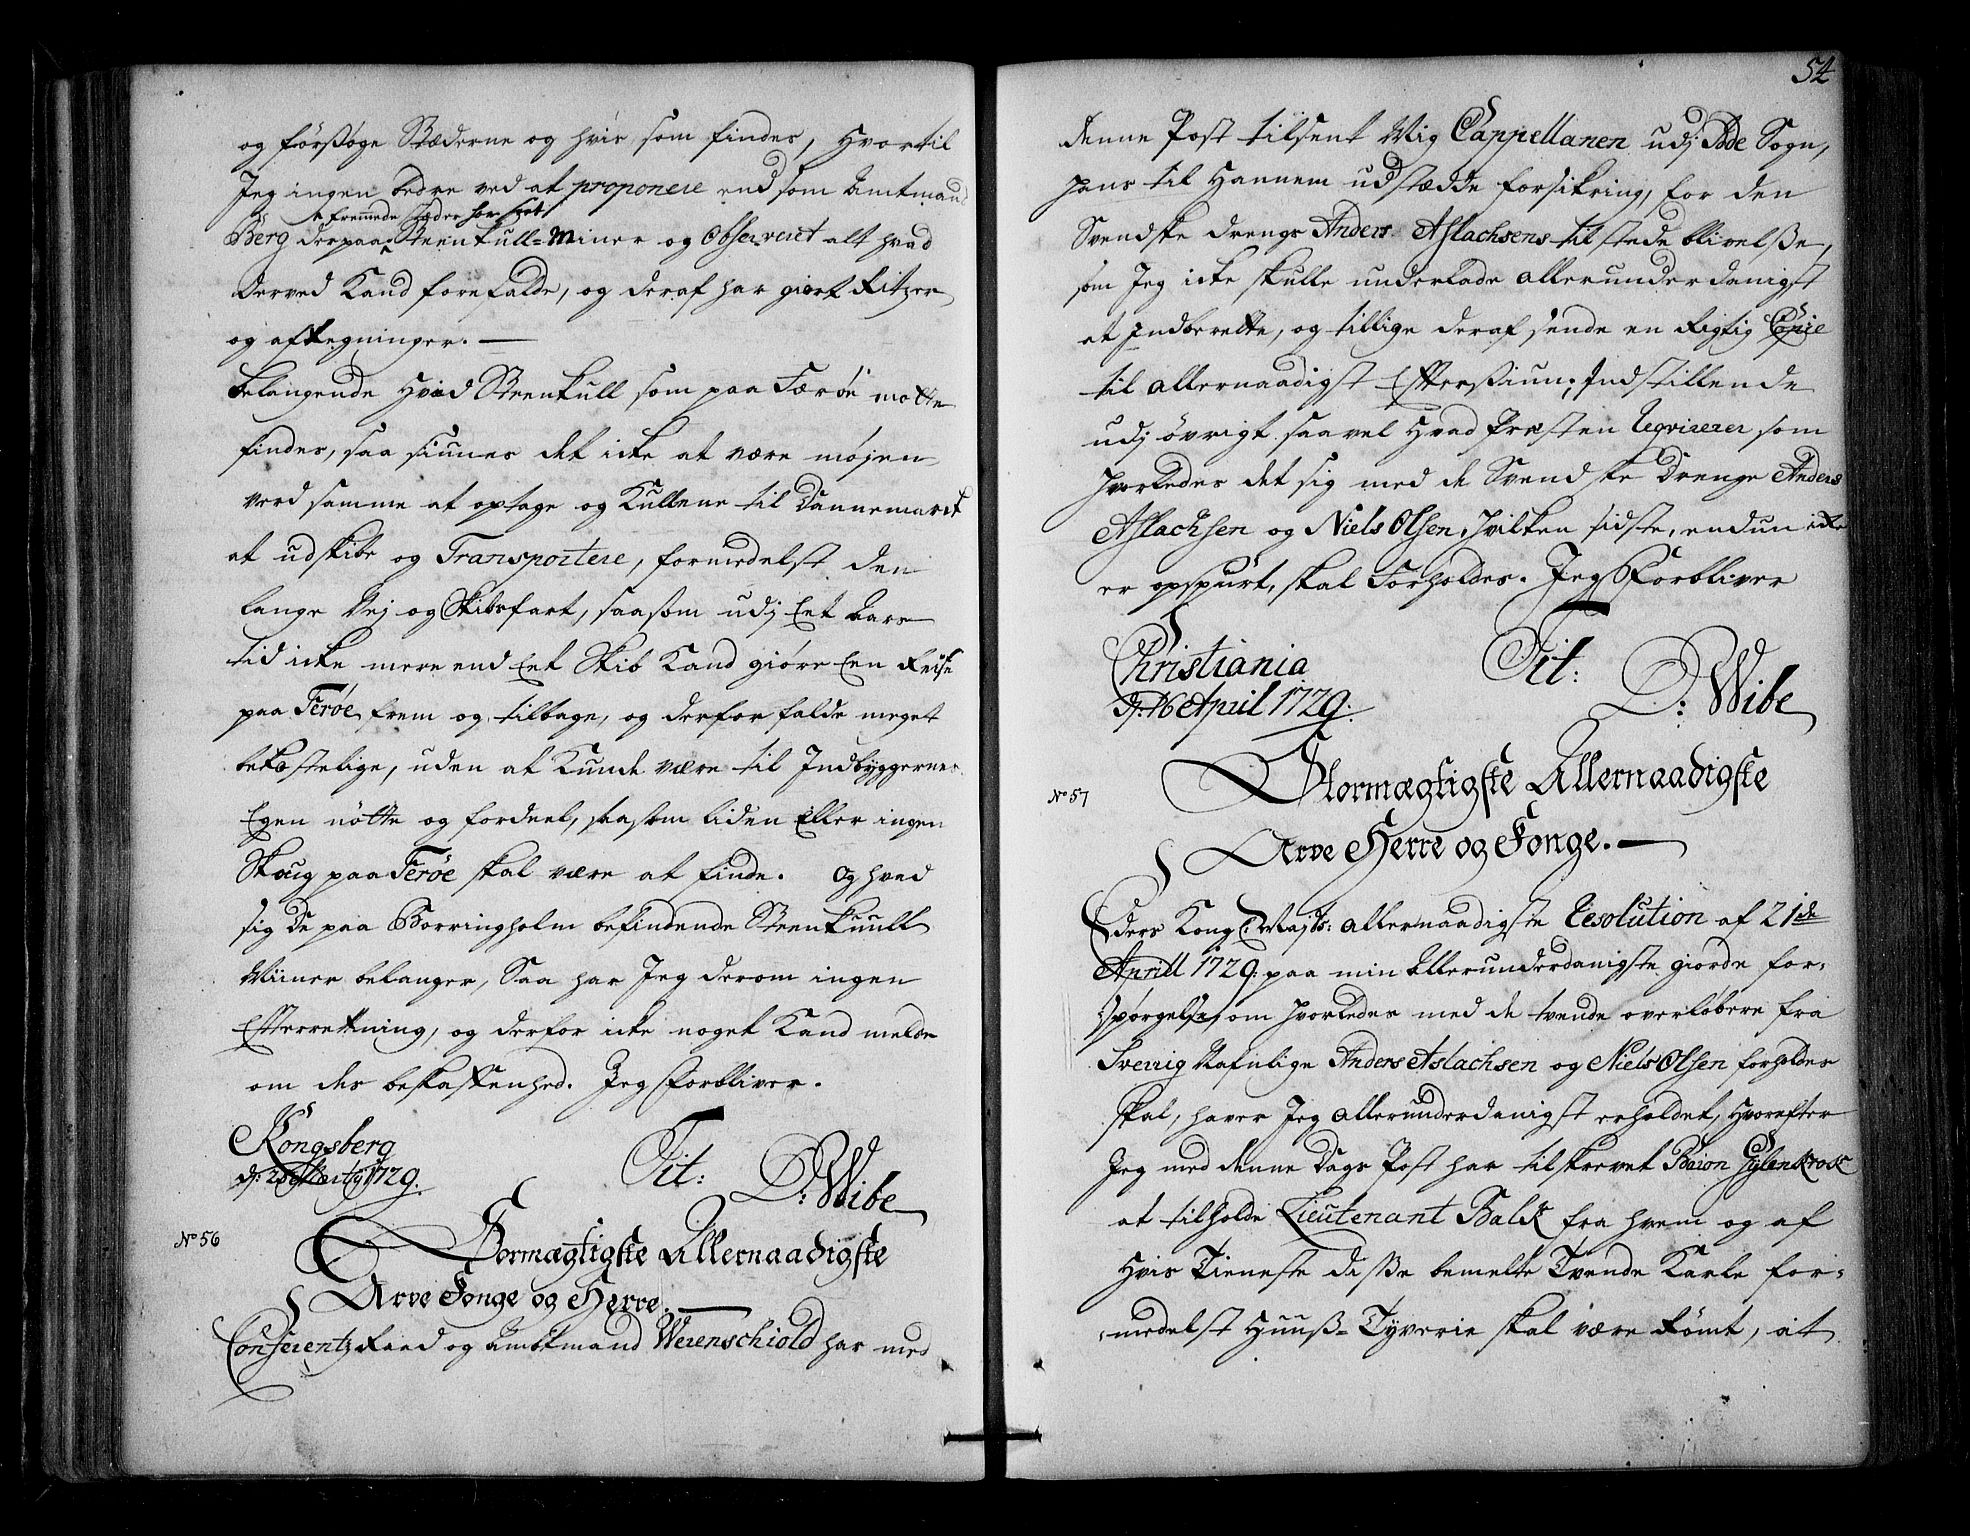 og forsøge Stæderne og hvis som findes, hvortil
Jeg ingen bedre ved at proponere end som Amtmand
paa fremmede Stæder har seet
Berg der Steenkull=Miner og Observeret alt hvad
derved Kand forefalde, og deraf har giort Ritzer
og aftegninger. —
belangende Hvad Steenkull som paa Færøe motte
findes, saa siunes det icke at være møjen
verd samme at optage og Kullene til Dannemarck
at udskibe og Transportere, formedelst den
lange Vej og Skibsfart, saasom udj Eet Aars
tid icke mere end Eet Skib Kand giøre Een Reise
paa Ferøe frem og tilbage, og derfor falde meget
bekostelige, uden at Kunde være til Indbyggernes
Egen nøtte og fordeel, saasom liden Eller ingen
Skoug paa Ferøe skal være at finde. Og hvad
sig de paa Borringholm befindende Steenkuull
Miiner belanger, Saa har Jeg derom ingen
Efterretning, og derfor icke noget Kand melde
om des beskaffenhed. Jeg forbliver.
Kongsberg
d: Martij 1729.
Tit: D: Wibe
No 56
Stormægtigste Allernaadigste
Arve Konge og Herre. —
Conferentz Raad og Amtmand Werenschiold har med
54
denne Post tilsent Mig Cappellanen udj Sogn,
hans til Hannem udstædde forsikring, for den
Svendske drengs Anders Aslachsens tilstedeblivelße,
som Jeg icke skulle underlade allerunderdanigst
at Indberette, og tillige deraf sende en Rigtig Copie
til allernaadigst Efterßiun; Indstillende
udj øvrigt saavel Hvad Præsten Reqvirerer som
hvorledes det sig med de Svendske Drenge Anders
Aslachsen og Niels Olsen, hvilken sidste, endnu icke
er opspurt, skal Forholdes. Jeg Forbliver
Christiania
d: 16 April 1729.
Tit: D: Wibe
No 57
Stormægtigste Allernaadigste
Arve Herre og Konge. —
Eders Kongl: Majts: allernaadigste Resolution af 21de
Aprill 1729. paa min Allerunderdanigste giorde for-
spørgelse, om hvorledes med de tvende overløbere fra
Sverrig Nafnlige Anders Aslachsen og Niels Olsen forholdes
skal, haver Jeg allerunderdanigst erholdet, Hvorefter
Jeg med denne Dags Post har tilskrevet Baron Gylenkrok
at tilholde Lieutenant Balck fra hvem og af
Hvis Tieneste disße bemelte Tvende Karle for-
medelst Huuß=Tyverie skal være Rømt, at